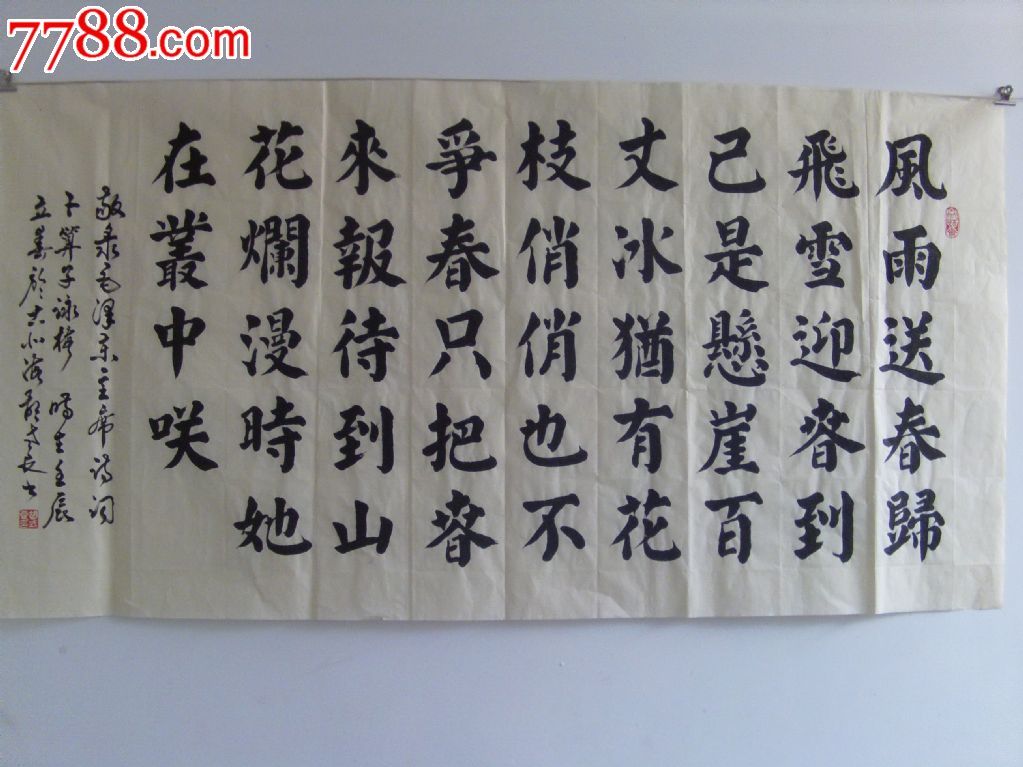 7788.com
風雨送春歸
飛雪迎春到
己是懸崖百
丈冰猶有花
枝俏俏也不
爭春只把春
來報待到山
花爛漫時她
在叢中咲
敬录毛泽东主席诗词
卜算子詠梅 時在壬辰
立春於古